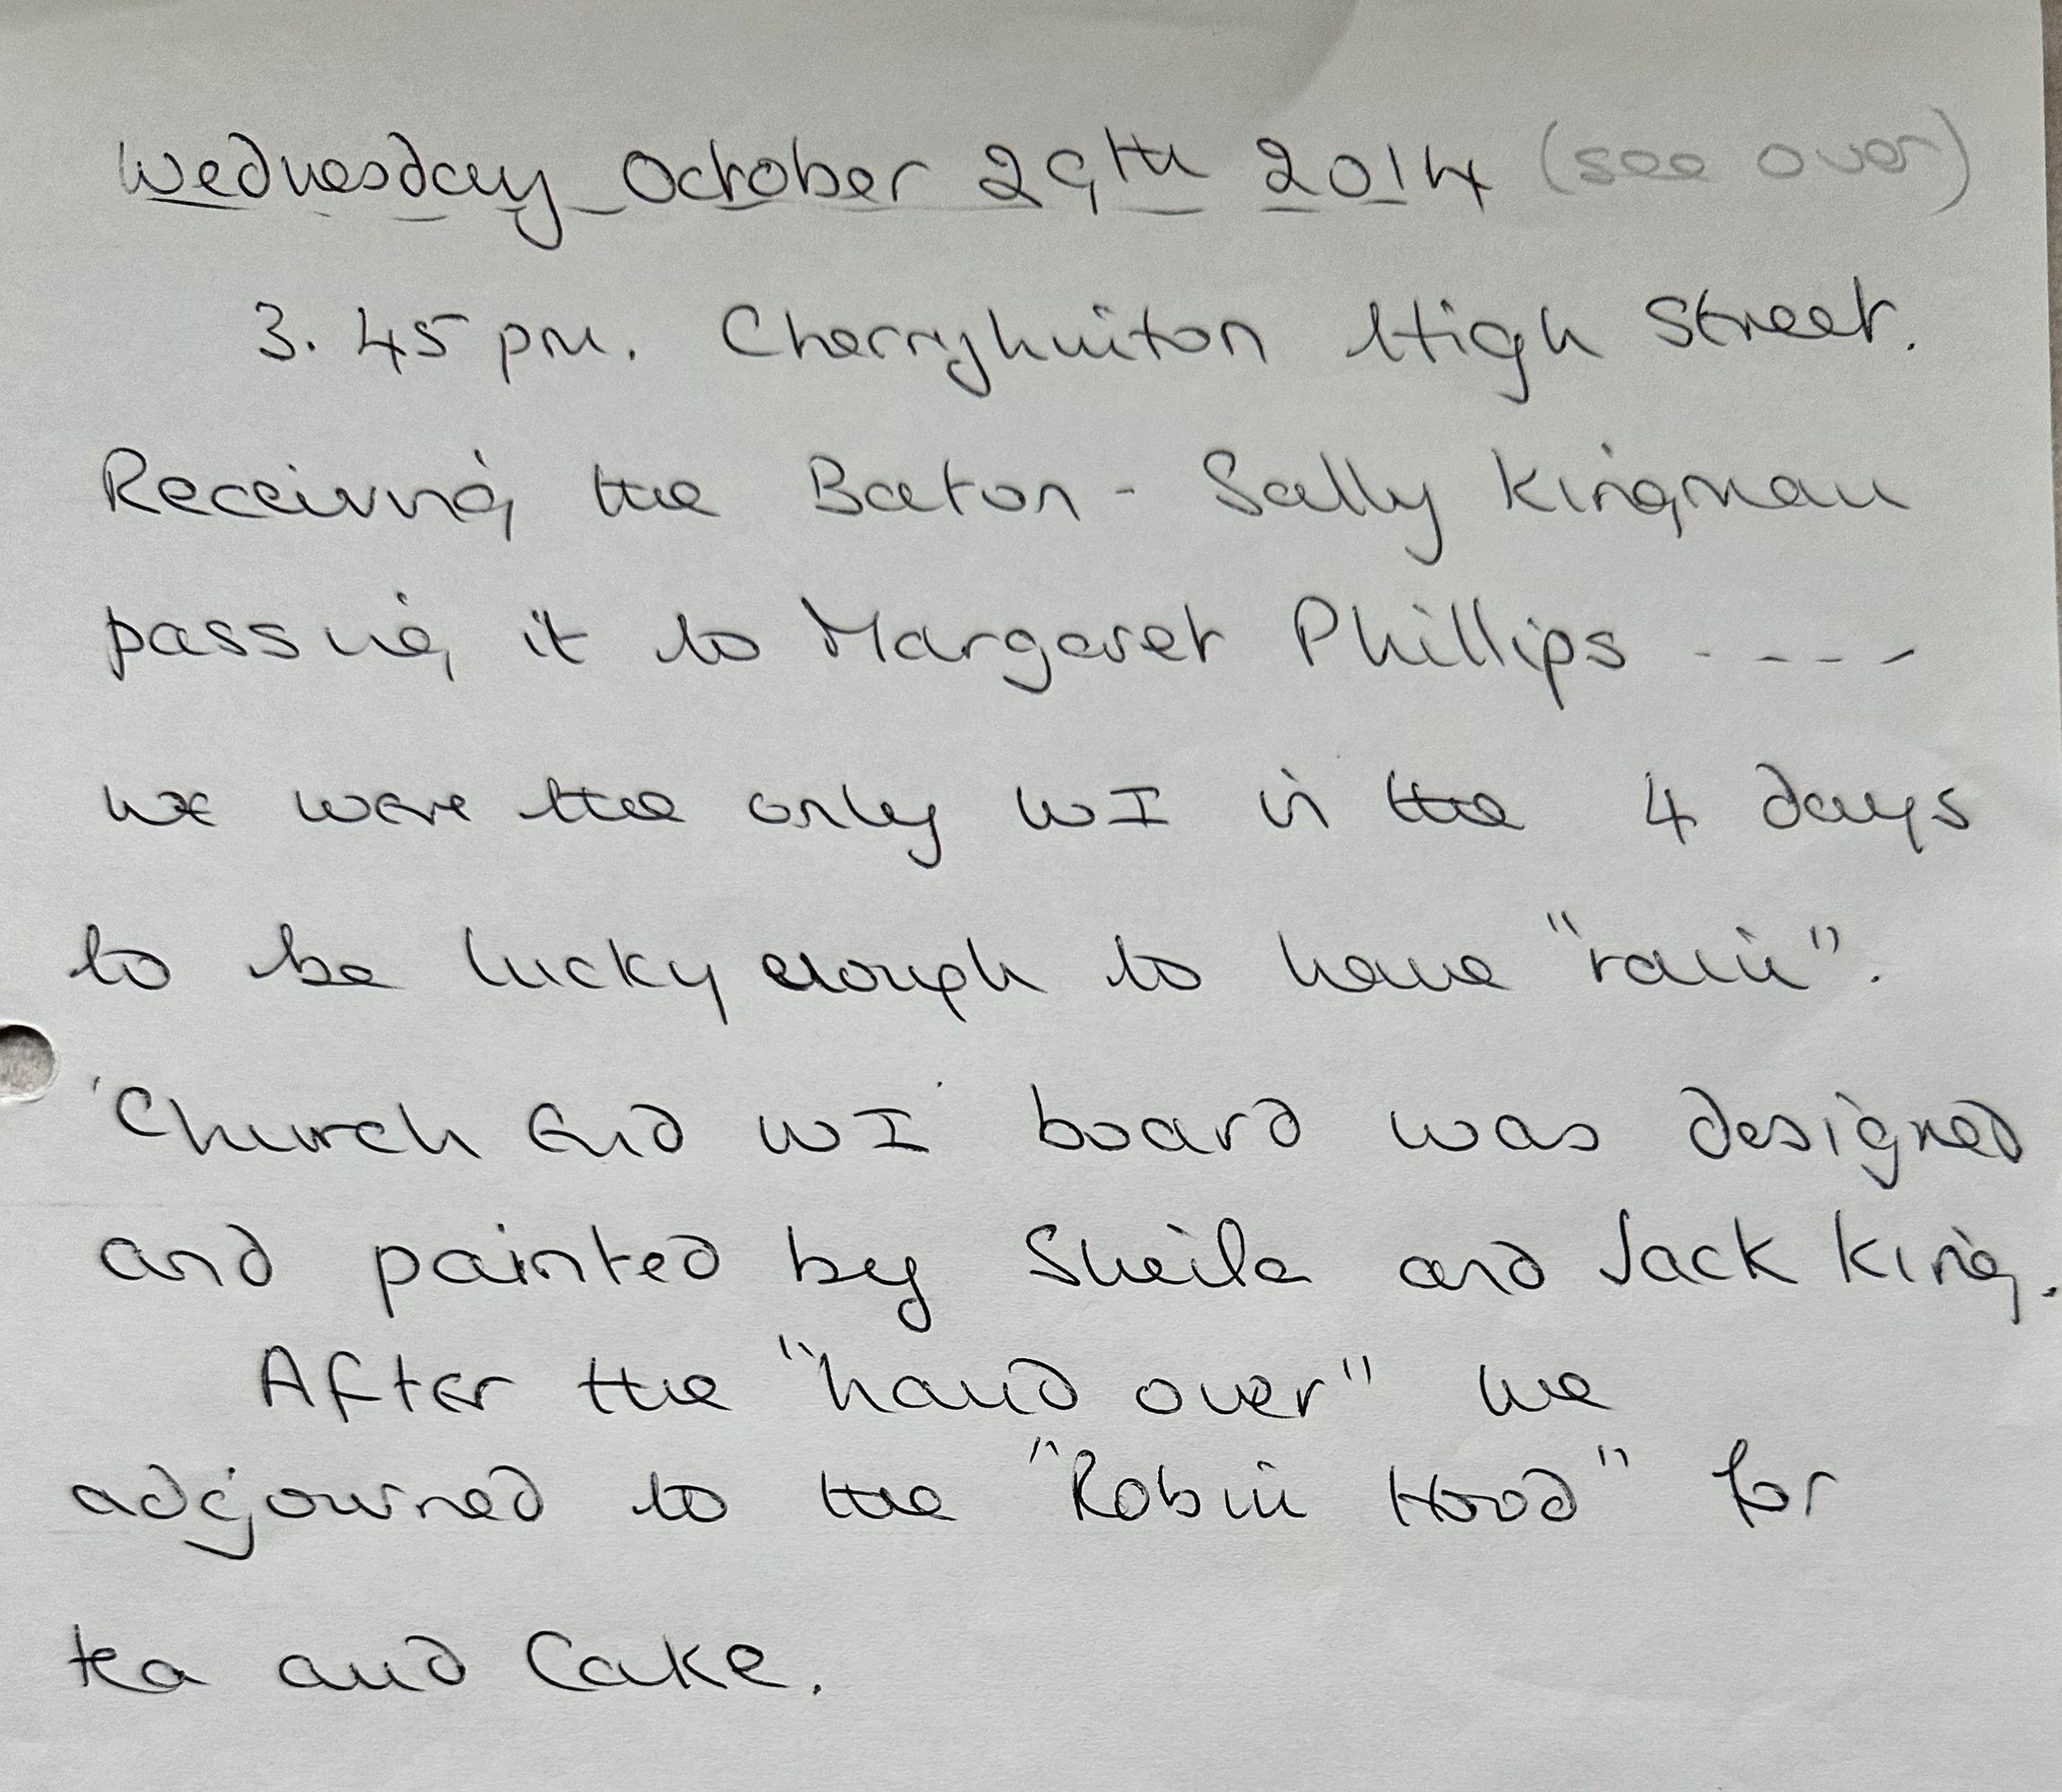 Wednesday October 29th 2014 (see over)
3.45 pm. Cherryhinton High Street.
Receiving the Baton - Sally Kingman
passing it to Margaret Phillips ----
we were the only WI in the 4 days
to be lucky enough to have "rain".
'Church End WI' board was designed
and painted by Sheila and Jack King.
After the "hand over" we
adjourned to the "Robin Hood" for
tea and Cake.